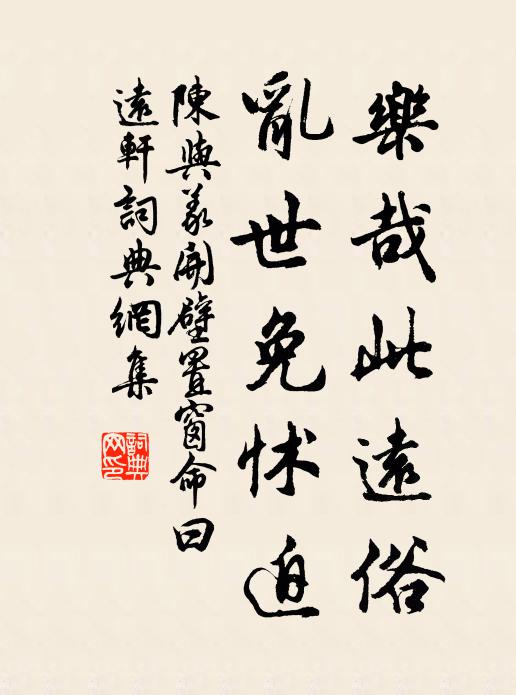 樂哉此遠俗
亂世免怵迫
陳與義開壁置窗命曰
遠軒詞典網集
詞典网印